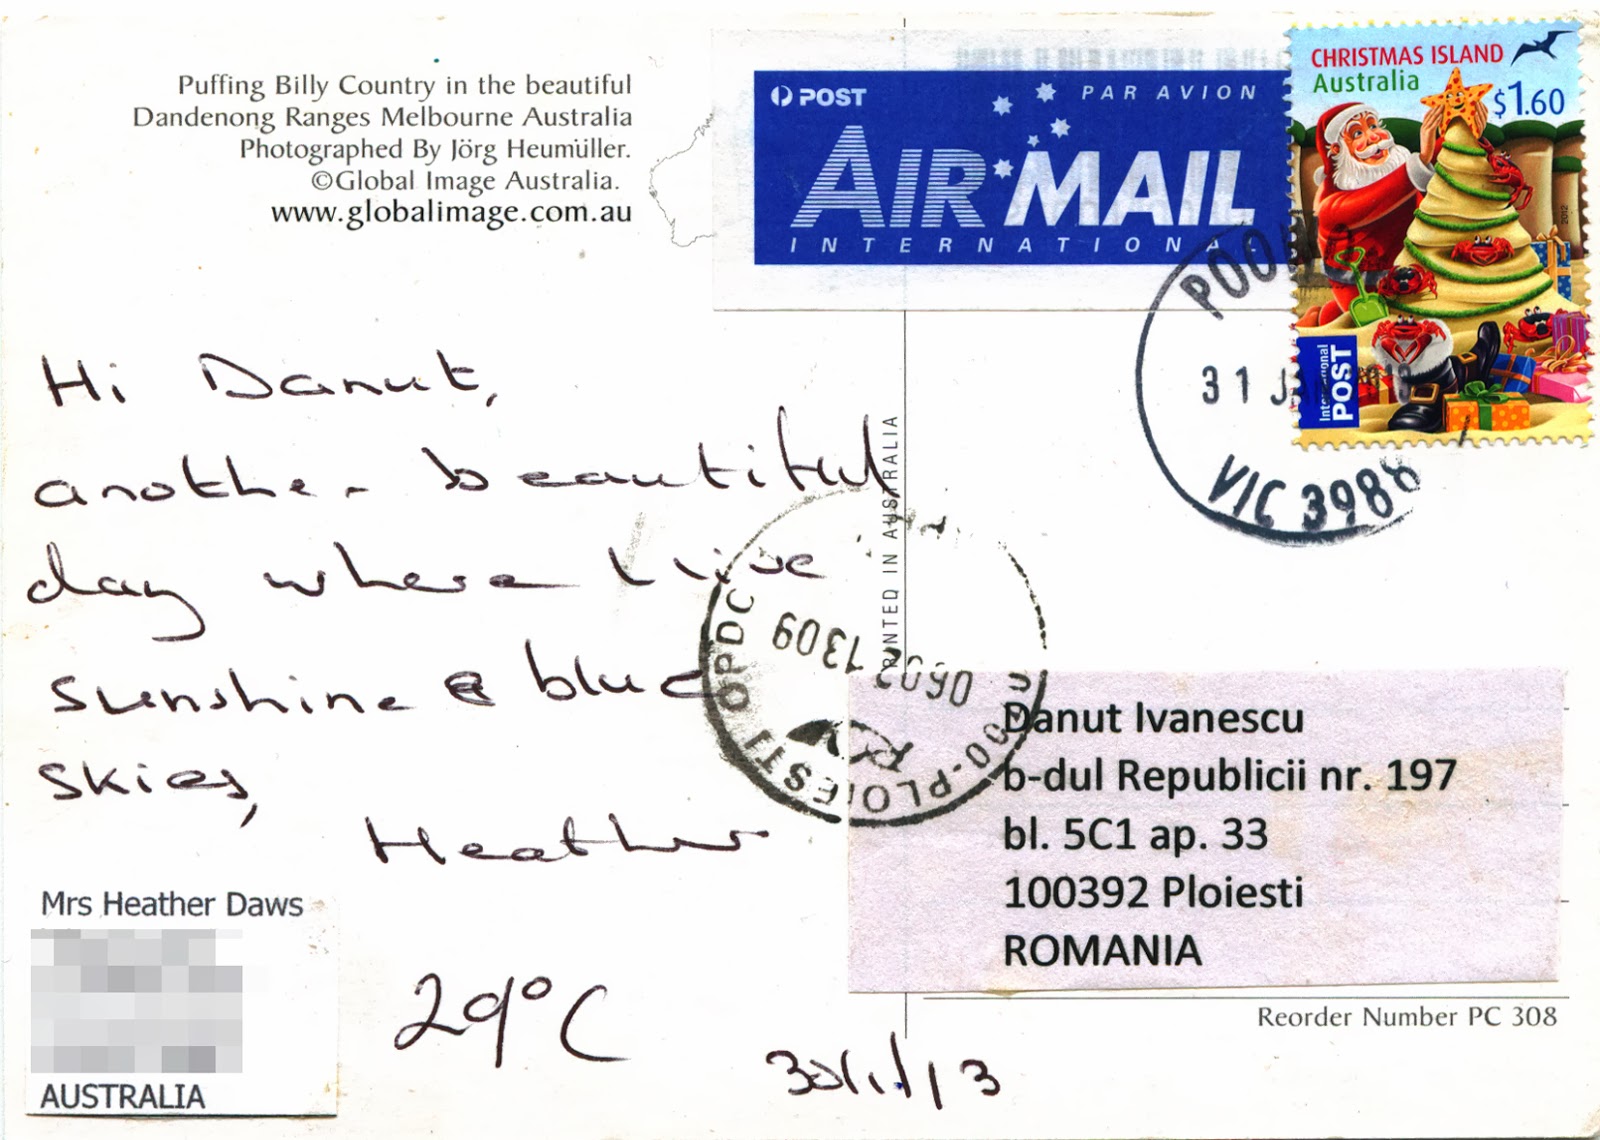 Puffing Billy Country in the beautiful
Dandenong Ranges Melbourne Australia
Photographed By Jörg Heumüller.
©Global Image Australia.
www.globalimage.com.au
POST PAR AVION
AIR MAIL
INTERNATIONAL
CHRISTMAS ISLAND
Australia
$1.60
2012
International
POST
31
VIC 3988
Hi Danut,
another beautiful
day where I live
sunshine & blue
skies,
Heather
PRINTED IN AUSTRALIA
1309
PLOIESTI OPDC
Mrs Heather Daws
AUSTRALIA
29°C
30/1/13
Danut Ivanescu
b-dul Republicii nr. 197
bl. 5C1 ap. 33
100392 Ploiesti
ROMANIA
Reorder Number PC 308